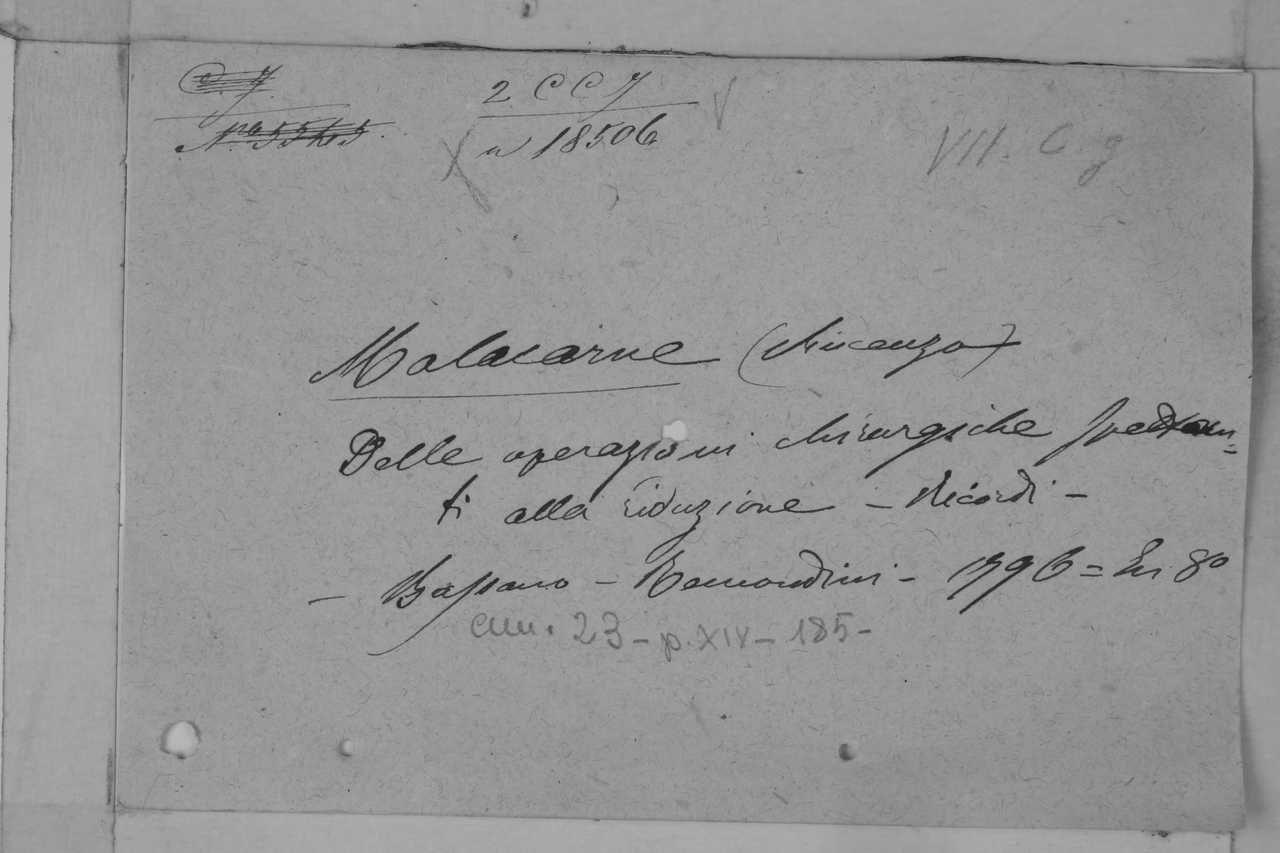 2 C C 7
n 18506
VII. C. g
Malacarne (Vincenzo)
Delle operazioni chirurgiche spettan=
ti alla riduzione - Ricordi -
- Bassano - Remondini - 1796 = In 8o
cm. 23 - p. XIV - 185 -